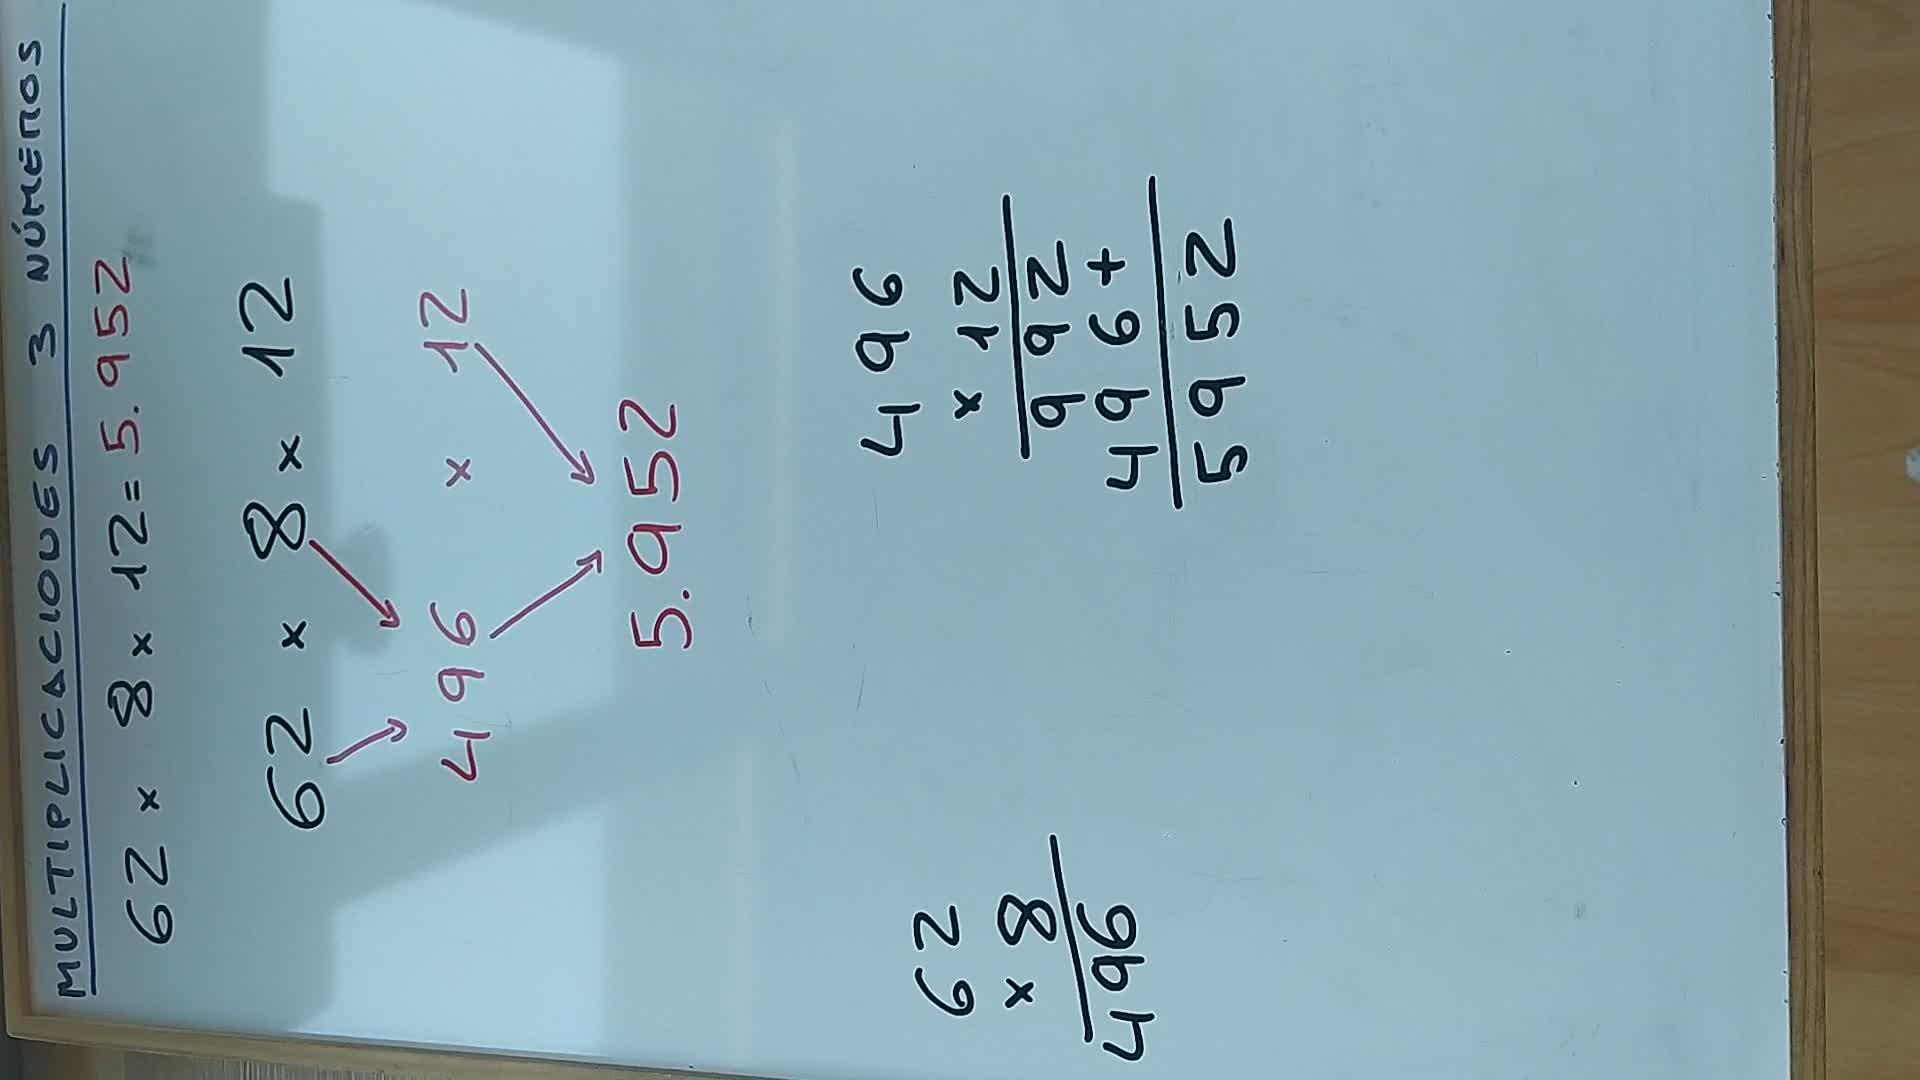 MULTIPLICACIONES 3 NÚMEROS
62 x 8 x 12 = 5.952
62 x 8 x 12
496 x 12
5.952
62
x 8
496
496
x 12
992
496+
5952